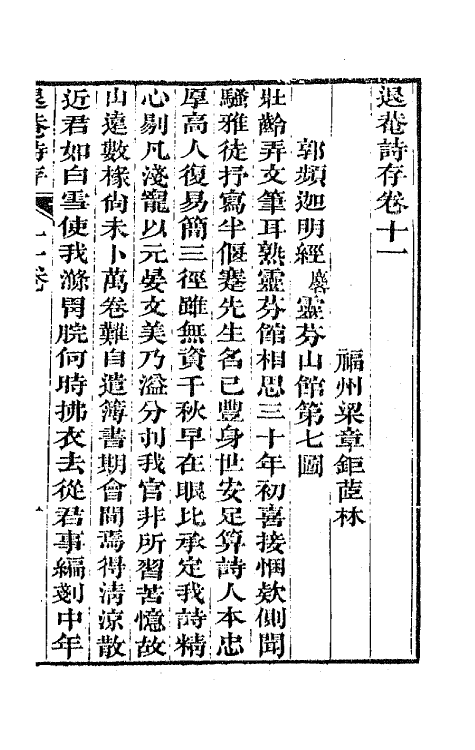 退菴詩存卷十一
福州梁章鉅茝林
郭頻迦明經麐靈芬山館第七圖
壯齡弄文筆耳熟靈芬館相思三十年初喜接悃款側聞
騷雅徒抒寫半偃蹇先生名已豐身世安足算詩人本忠
厚高人復易簡三徑雖無資千秋早在眼比承定我詩精
心剔凡淺寵以元晏文美乃溢分刌我官非所習苦憶故
山遠數椽尙未卜萬卷難自遣簿書期會間焉得淸涼散
近君如白雪使我滌胃脘何時拂衣去從君事編剗中年
退菴詩存 十一卷